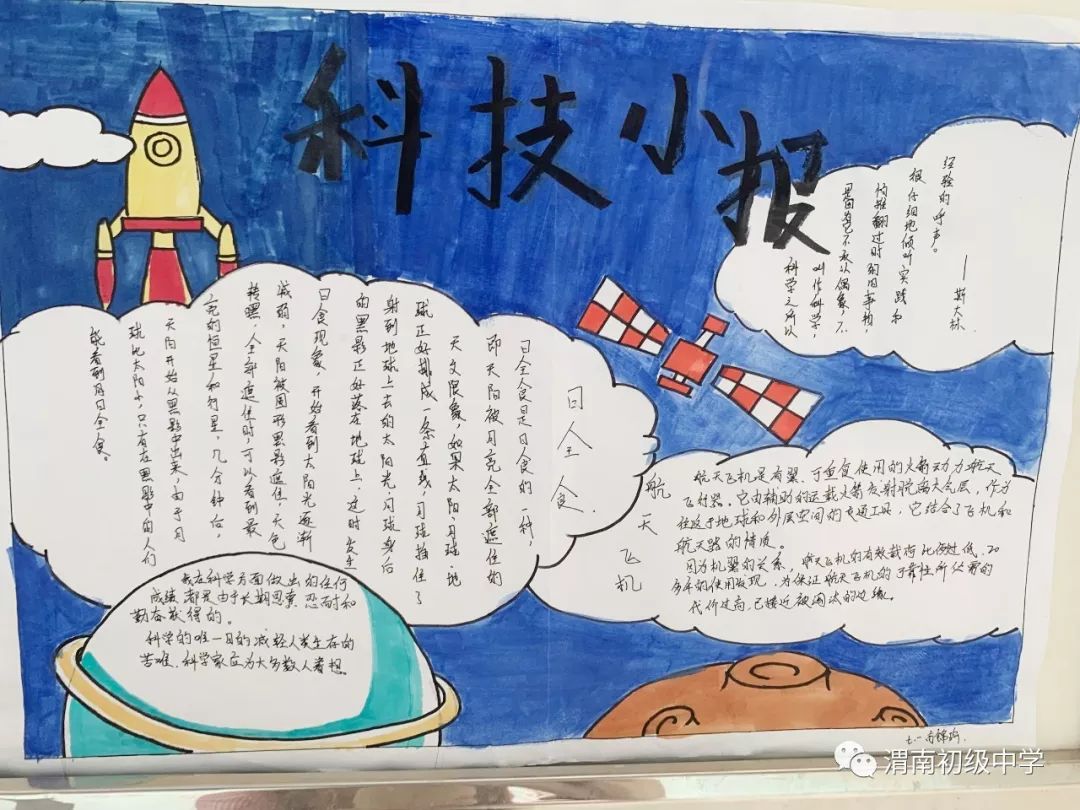 科技小报
科学之所以
叫作科学，
是因为它不承认偶象，不
怕推翻过时的旧事物
很仔细地倾听实践和
经验的呼声。
——斯大林
日全食
日全食是日食的一种，
即天阳被月亮全部遮住的
天文限象，如果太阳、月球、地
球正好排成一条直线，月球挡住了
射到地球上去的太阳光，月球身后
的黑影正好落在地球上，这时发生
日食现象，开始看到太阳光逐渐
减弱，天阳被圆形黑影遮住，天色
转暗，全部遮住时，可以看到最
亮的恒星和行星，几分钟后，
天阳开始从黑影中出来，由于月
球比太阳小，只有在黑影中的人们
能看到月日全食。
航天飞机
航天飞机是有翼、可重复使用的火箭动力航天
飞行器。它由辅助的运载火箭发射脱离大气层，作为
往返于地球和外层空间的交通工具，它结合了飞机和
航天器的情质。
因为机翼的关系，航天飞机的有效载荷比例过低、20
多年的使用发现，为保证航天飞机的可靠性所必需的
代价过高，已接近被淘汰的边缘。
我在科学方面做出的任何
成绩都是由于长期思索、忍耐和
勤奋获得的。
科学的唯一目的减轻人类生存的
苦难、科学家应为大多数人着想。
渭南初级中学